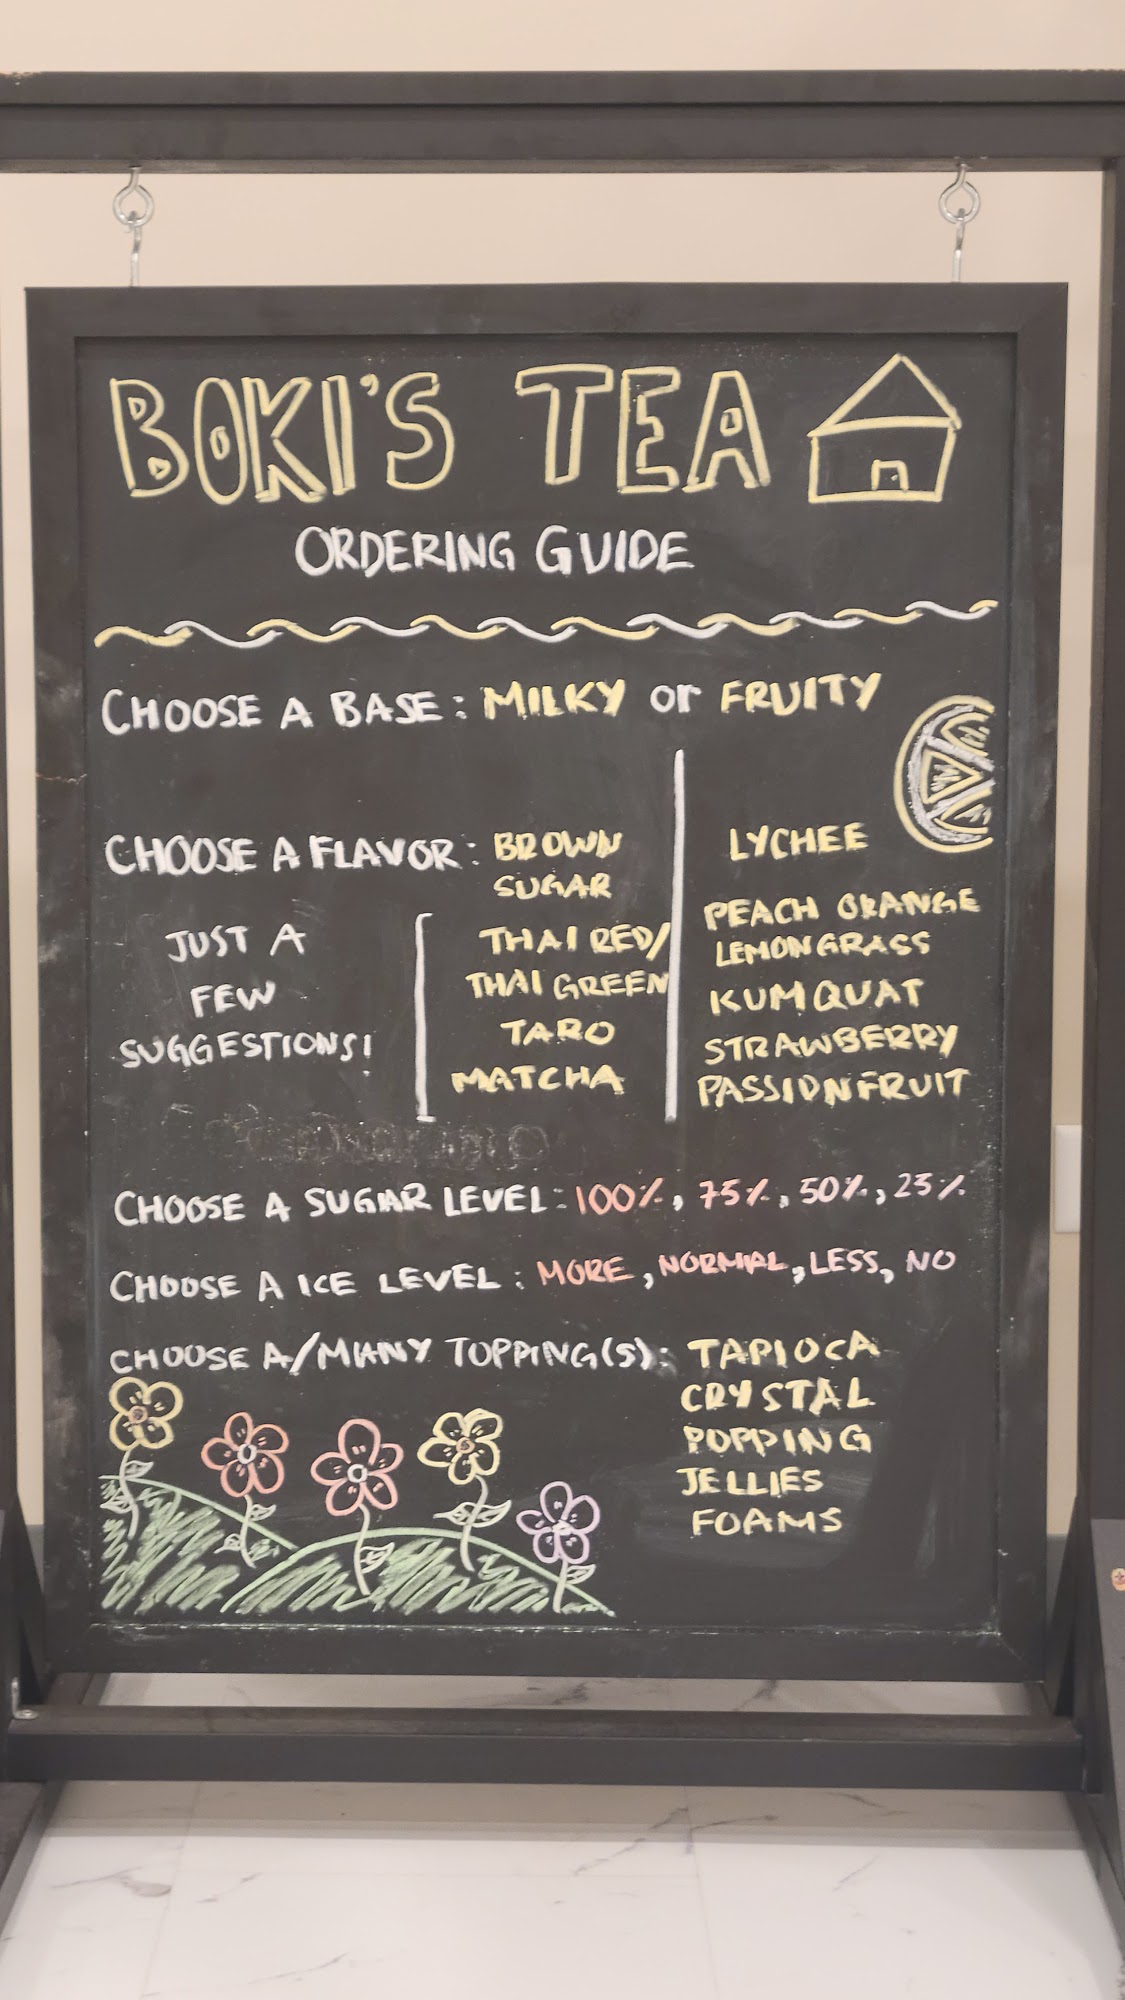 BOKI'S TEA
ORDERING GUIDE
CHOOSE A BASE: MILKY or FRUITY
CHOOSE A FLAVOR:
JUST A
FEW
SUGGESTIONS!
BROWN
SUGAR
THAI RED/
THAI GREEN
TARO
MATCHA
LYCHEE
PEACH ORANGE
LEMONGRASS
KUMQUAT
STRAWBERRY
PASSIONFRUIT
CHOOSE A SUGAR LEVEL: 100%, 75%, 50%, 25%
CHOOSE A ICE LEVEL: MORE, NORMAL, LESS, NO
CHOOSE A/MANY TOPPING(S): TAPIOCA
CRYSTAL
POPPING
JELLIES
FOAMS